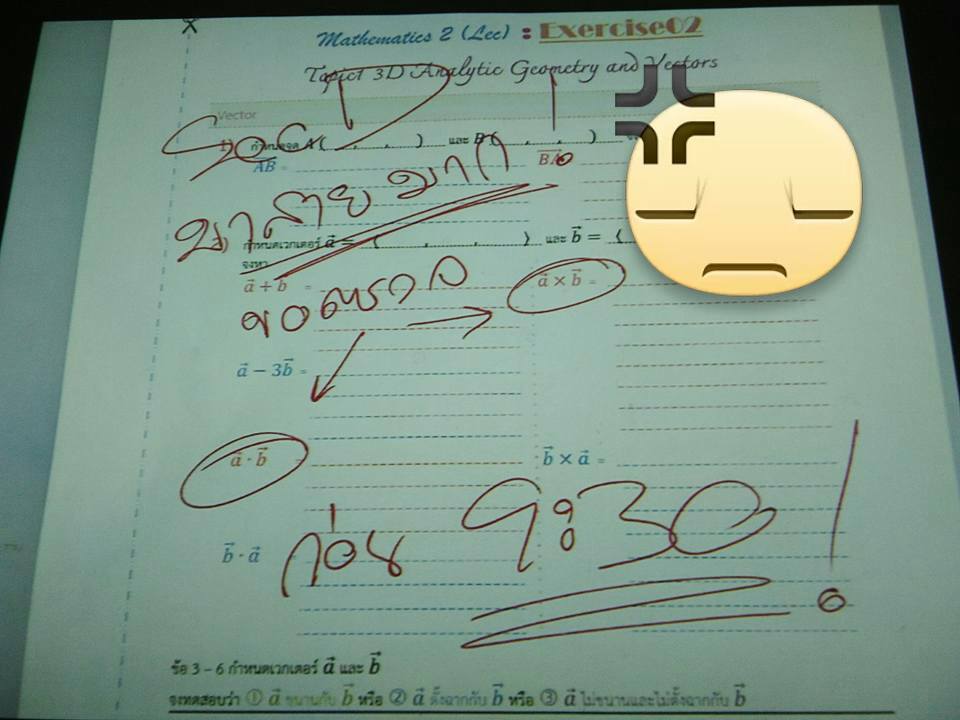 Mathematics 2 (Lec) : Exercise02
Topic1 3D Analytic Geometry and Vectors
Vector
กำหนดจุด A ( , , ) และ B ( , , )
AB =
BA
มาสายมาก
กำหนดเวกเตอร์ a = ⟨ , , ⟩ และ b = ⟨
จงหา
a + b =
a × b =
ขอตรวจ
a − 3b =
a · b
b × a =
ก่อน 9:30 !
b · a
ข้อ 3 – 6 กำหนดเวกเตอร์ a และ b
จงทดสอบว่า ① a ขนานกับ b หรือ ② a ตั้งฉากกับ b หรือ ③ a ไม่ขนานและไม่ตั้งฉากกับ b